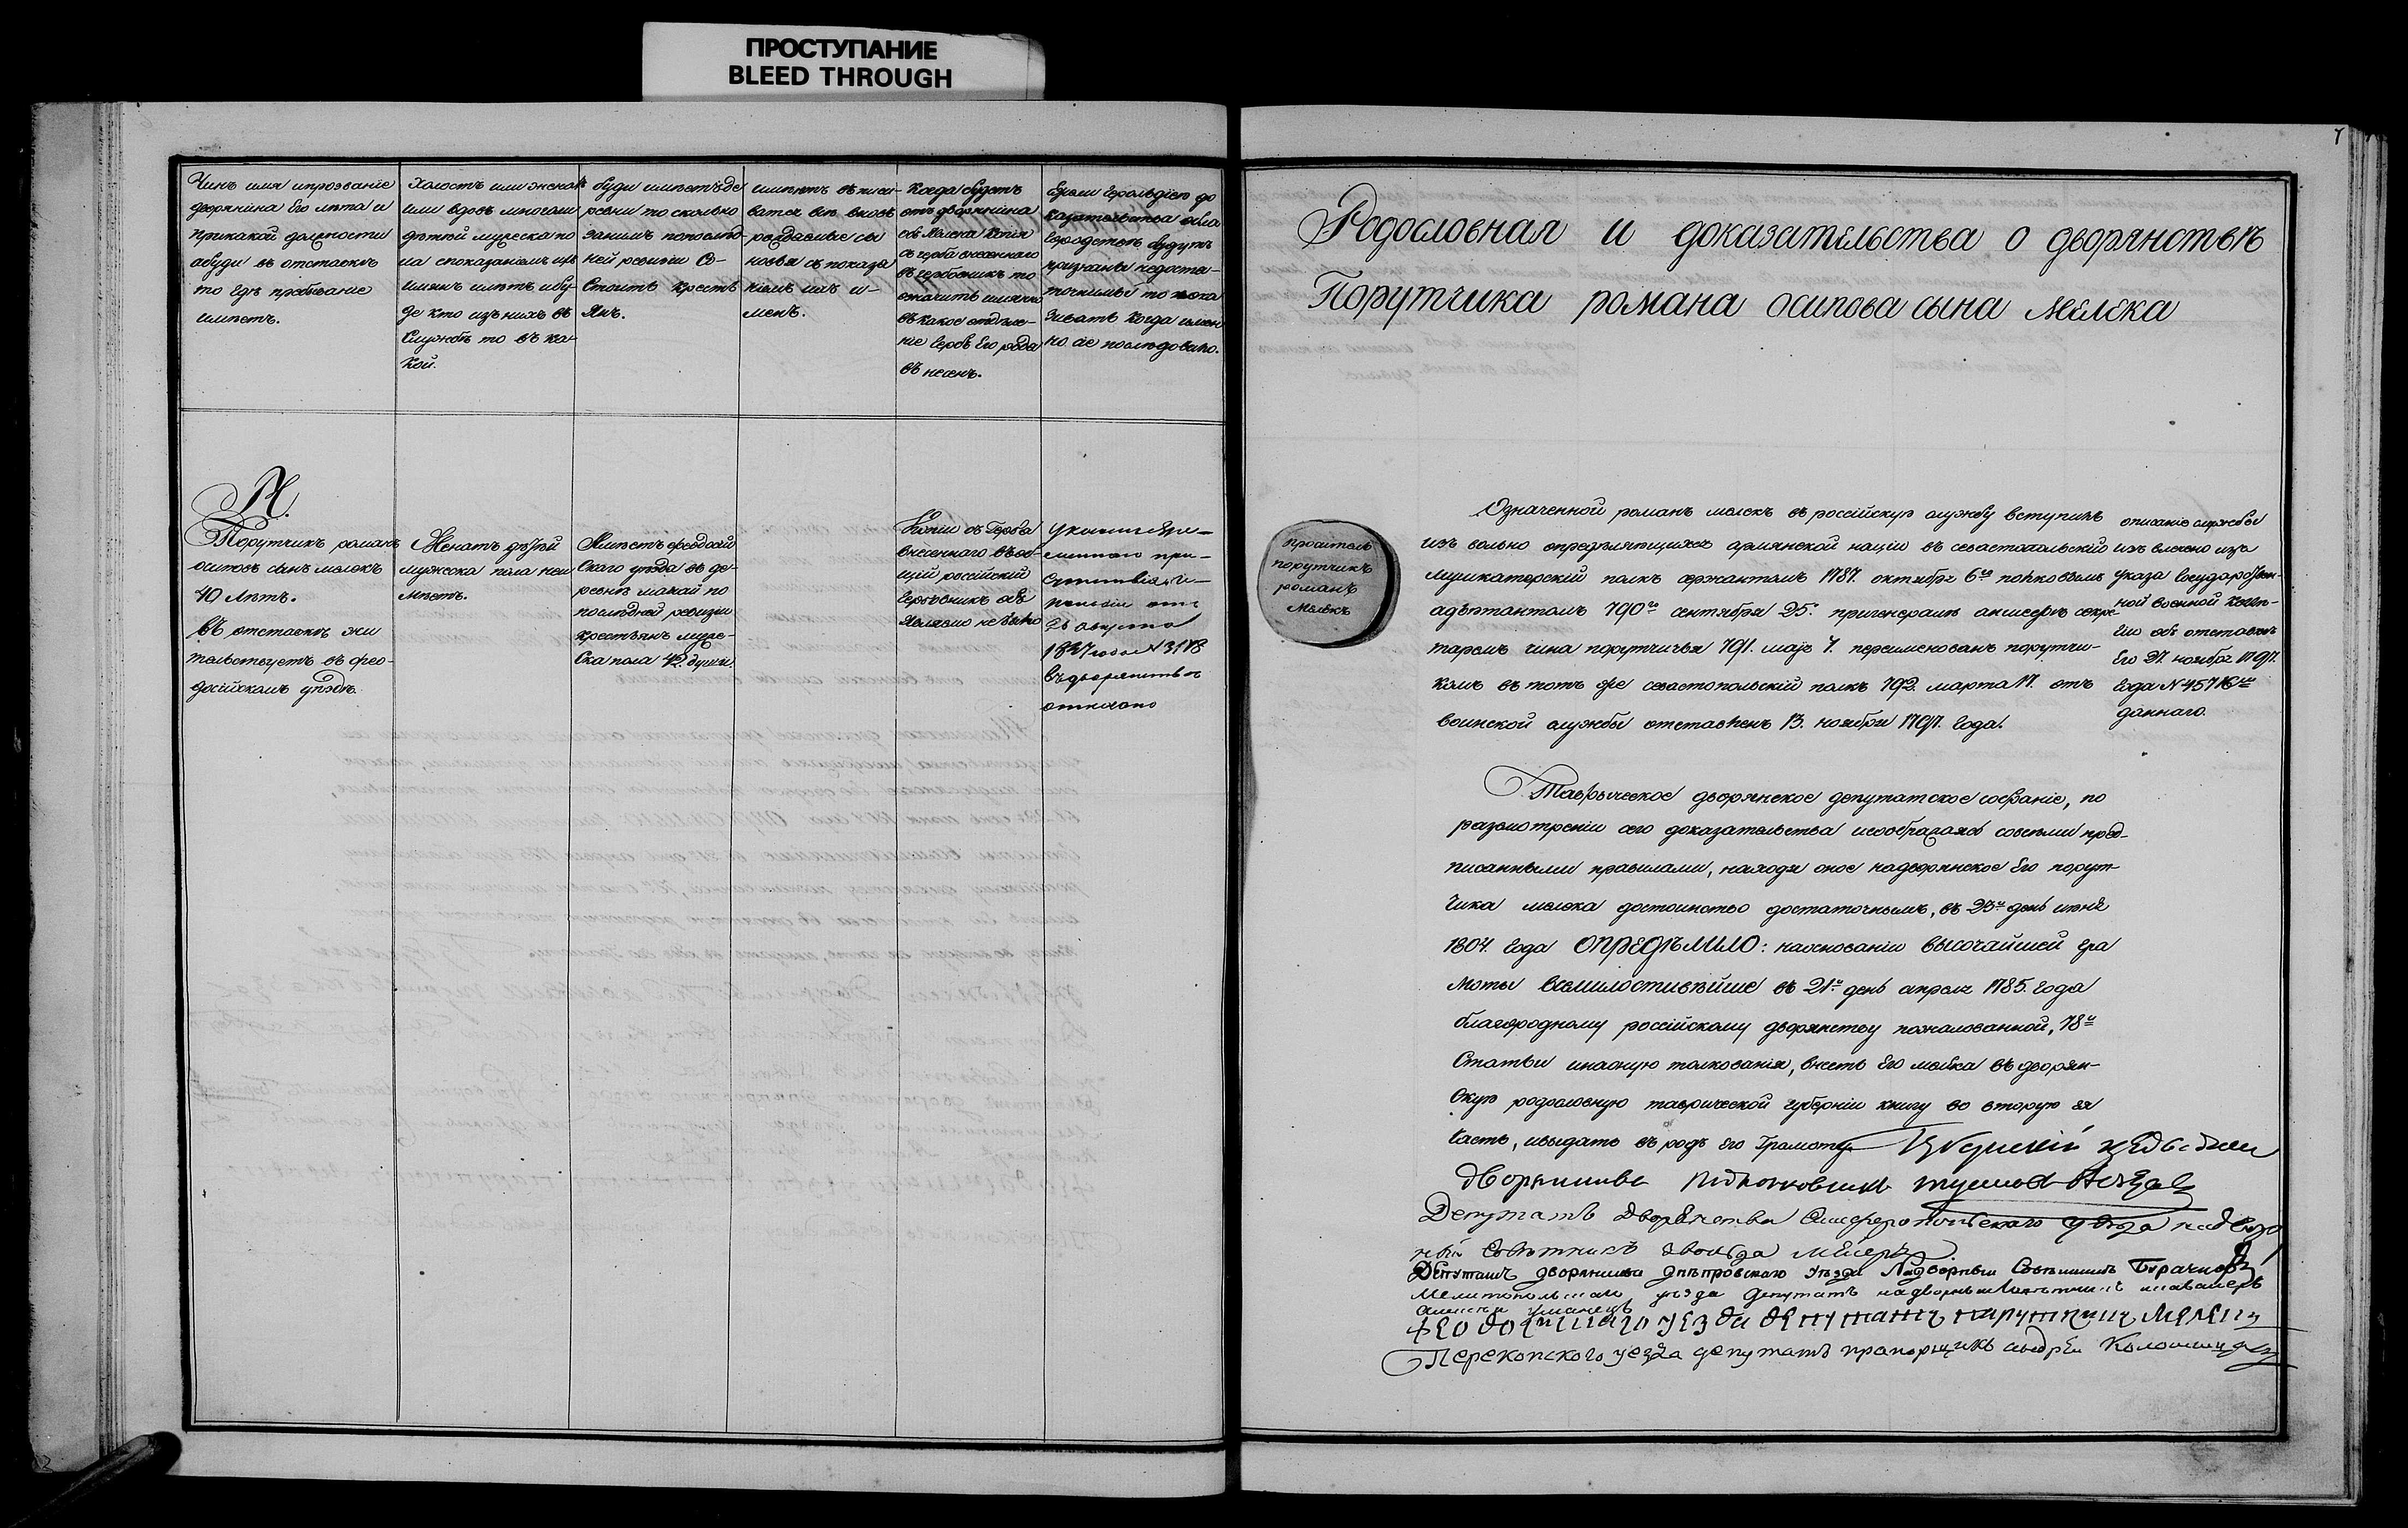 ПРОСТУПАНИЕ
BLEED THROUGH
Чинъ имя ипрозваніе
дворянина Его лѣта и
прикакой должности
абуде въ отставкѣ
то гдѣ пребываніе
имѣетъ.
Холостъ или женатъ
или вдовъ многоли
дѣтей мужеска по
ла споказаніемъ ихъ
имянъ илѣтъ ибу
де кто изъ нихъ въ
Службѣ то въ ка
кой.
буде имѣетъ де
ревни то сколько
занимъ попослѣд
ней ревизіи Со-
стоитъ крестья
янъ.
имѣютъ вписы-
ватся всѣ вновь
раждаемые сы
новья съ показа
ніемъ ихъ и-
менъ.
Когда будетъ
отъ дворянина
копія
съ герба внесеннаго
въ гербовникъ то
означить имянно
въ какое отдѣле-
ніе гербъ Его рода
въ несенъ.
Ежели Герольдіею до
казательства обла
городствѣ будутъ
признаны недоста-
точными то пока
зывать когда имен
но сіе послѣдовало.
М.
Порутчикъ романъ
осиповъ сынъ мелекъ
40 лѣтъ.
въ отставкѣ жи
тельствуетъ въ фео-
досійскомъ уѣздѣ.
Женатъ дѣтей
мужеска пола неи
мѣетъ.
Имѣетъ феодосій
скаго уѣзда въ де-
ревнѣ
послѣдней ревизіи
крестьянъ муже-
ска пола 42. души.
Копіи съ Герба
внесеннаго въ об-
щій россійскій
Гербовникъ объ
явлено не было
Указомъ Вре-
меннаго при-
сутствія Ге-
рольдіи отъ
августа
1837 года
въ дворянствѣ
отказано
7
Родословная и доказательства о дворянствѣ
Порутчика романа осипова сына мелека
проситель
порутчикъ
романъ
Мелекъ
Означенной романъ мелекъ въ россійскую службу вступилъ
изъ вольно опредѣляющихся армянской націи въ севастопольскій
мушкатерскій полкъ сержантомъ 1787. октября 6го полковымъ
адъютантомъ 790го сентября 25. пригенералъ аншефѣ секре-
таремъ чина порутчичья 791. маія 7. переименованъ порутчи-
комъ въ тотъ же севастопольскій полкъ 792. марта 17. отъ
воинской службы отставленъ 13. ноября 1797. года.
описаніе службы
извлечено изъ
указа Государствен-
ной военной Колле-
гіи объ отставкѣ
Его 27. ноября 1797.
года
даннаго.
Таврическое дворянское депутатское собраніе, по
разсмотреніи сего доказательства исообразаясь совсѣми пред-
писанными правилами, находя оное надворянское Его порут
чика мелека достоинство достаточнымъ, въ 23й день июня
1804. года ОПРЕДѢЛИЛО: наоснованіи высочайшей гра
моты всемилостивѣйше въ 21й день апреля 1785. года
благородному россійскому дворянству пожалованной, 78й
Статьи инаоную толкованія, внесть Его мелека въ дворян-
скую родословную таврической губерніи книгу во вторую ея
часть, ивыдать въ родъ его Грамоту.
Дворянства
Депутатъ Дворянства Симферопольскаго уѣзда надвор
ный Совѣтникъ
Депутатъ дворянства днѣпровскаго уѣзда Надворный Совѣтникъ
Мелитопольскаго уѣзда депутатъ надворный Совѣтникъ икавалеръ
Алексѣй Уманецъ
Перекопского уезда депутатъ прапорщикъ андрѣй